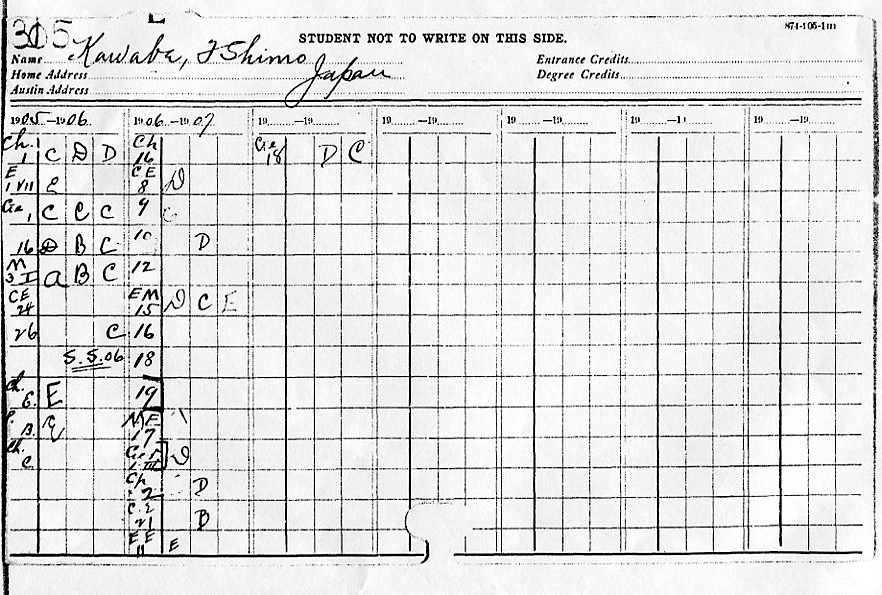 305
STUDENT NOT TO WRITE ON THIS SIDE.
874-105-1m
Name Kawabe, IShimo
Entrance Credits
Home Address Japan
Degree Credits
Austin Address
1905-1906. 1906-1907 19 -19 19 -19 19 -19 19 -19 19 -19
Ch. 1 C D D Ch 16 Ge 18 D C
E 1 VII E CE 8 D
Ge 1 C C C 9 C
16 D B C 10 D
M 3 I a B C 12
CE 24 EM 15 D C E
26 C 16
S.S.06 18
Ch. E. E 19
B. E ME 17
Ch. C. Ger 1 III D
Ch 2 D
C.E 21 B
EE 11 E